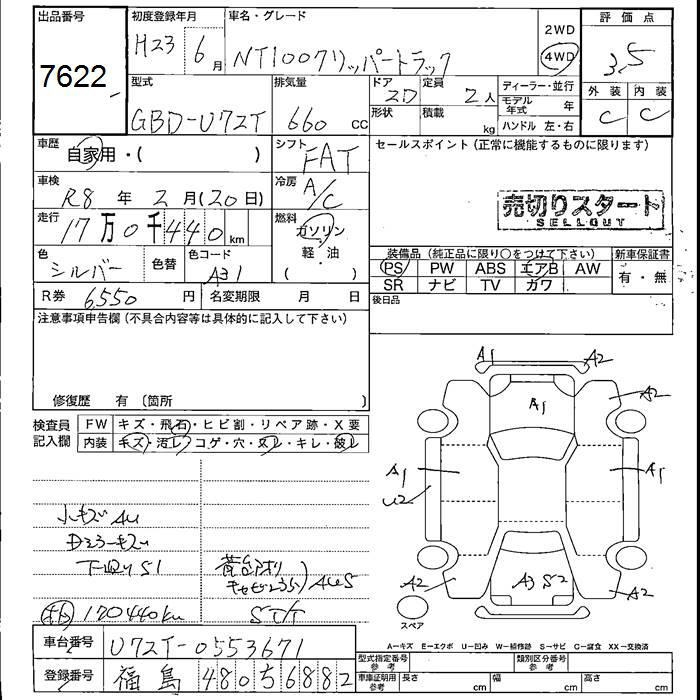 出品番号
7622
初度登録年月
H23 年 6月
車名・グレード
NT100クリッパートラック
2WD
4WD
評価点
3.5
外装 内装
C C
型式
GBD-U72T
排気量
660 cc
ドア 2D
形状
定員 2人
積載 kg
ディーラー・並行
モデル年式 年
ハンドル 左・右
車歴
自家用・( )
シフト
FAT
セールスポイント(正常に機能するものに限ります)
売切りスタート
SELLOUT
車検
R8 年 2月(20日)
冷房
A/C
走行
17万0千440km
燃料
ガソリン
軽・油
( )
色
シルバー
色替
色コード
A31
装備品(純正品に限り○をつけて下さい)
PS PW ABS エアB AW
SR ナビ TV ガワ
新車保証書
有・無
R券 6,550 円
名変期限 月 日
後日品
注意事項申告欄(不具合内容等は具体的に記入して下さい)
修復歴 有〔箇所 〕
検査員記入欄
FW キズ・飛石・ヒビ割・リペア跡・X要
内装 キズ・汚レ・コゲ・穴・スレ・キレ・破レ
小キズ AU
下回り S1
170440km
A1 A2
A1 A2
A1 A1
U2
A2 A3 S2 A2
スペア
A=キズ E=エクボ U=凹み W=補修跡 S=サビ C=腐食 XX=交換済
車台番号
U72T-0553671
登録番号
福島 480 い 6882
型式指定番号 参考
類別区分番号 参考
車庫証明用 参考
長さ cm 幅 cm 高さ cm